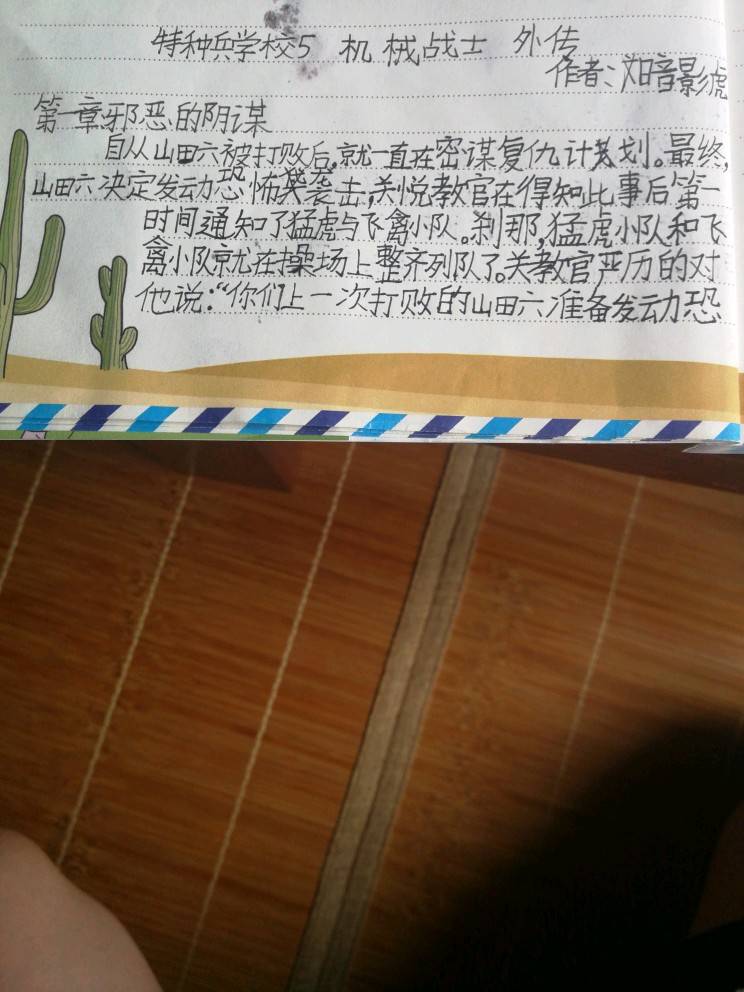 特种兵学校5 机械战士 外传
作者:暗影虎
第一章邪恶的阴谋
自从山田六被打败后,就一直在密谋复仇计划。最终,
山田六决定发动恐怖袭击,关悦教官在得知此事后第一
时间通知了猛虎与飞禽小队。刹那,猛虎小队和飞
禽小队就在操场上整齐列队了。关教官严历的对
他说:“你们上一次打败的山田六准备发动恐